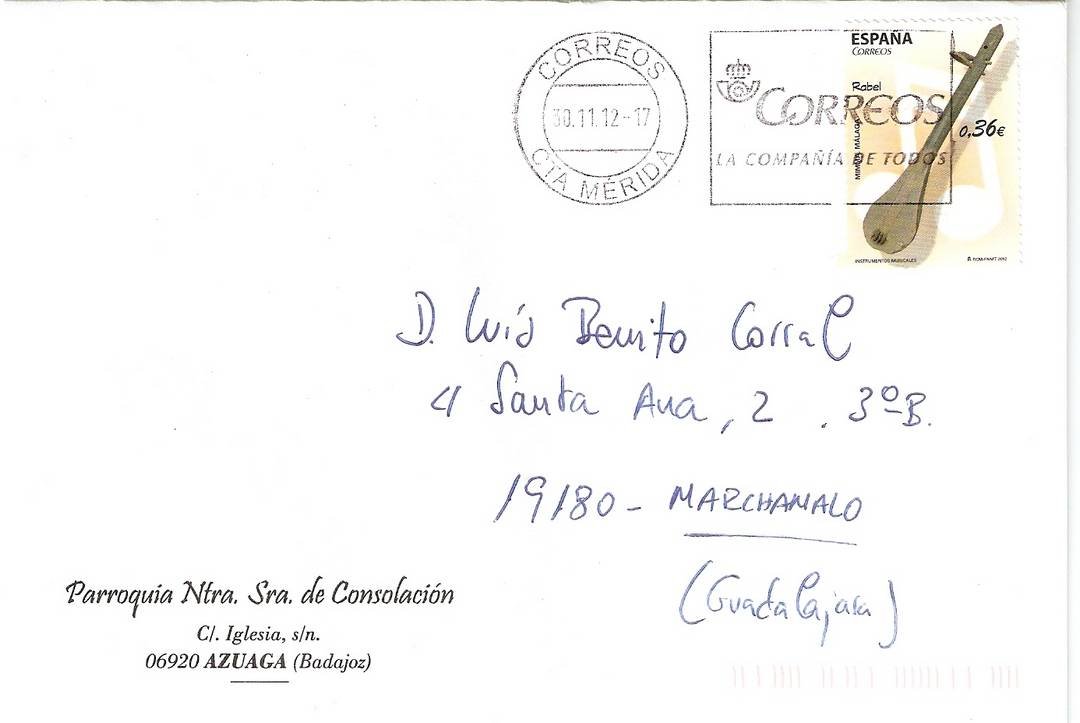 CORREOS
30.11.12-17
CTA MÉRIDA
CORREOS
LA COMPAÑÍA DE TODOS
ESPAÑA
CORREOS
Rabel
0,36€
MIMMA MÁLAGA
INSTRUMENTOS MUSICALES
D. Luis Benito Corral
C/ Santa Ana, 2 . 3º-B.
19180- MARCHAMALO
(Guadalajara)
Parroquia Ntra. Sra. de Consolación
C/. Iglesia, s/n.
06920 AZUAGA (Badajoz)